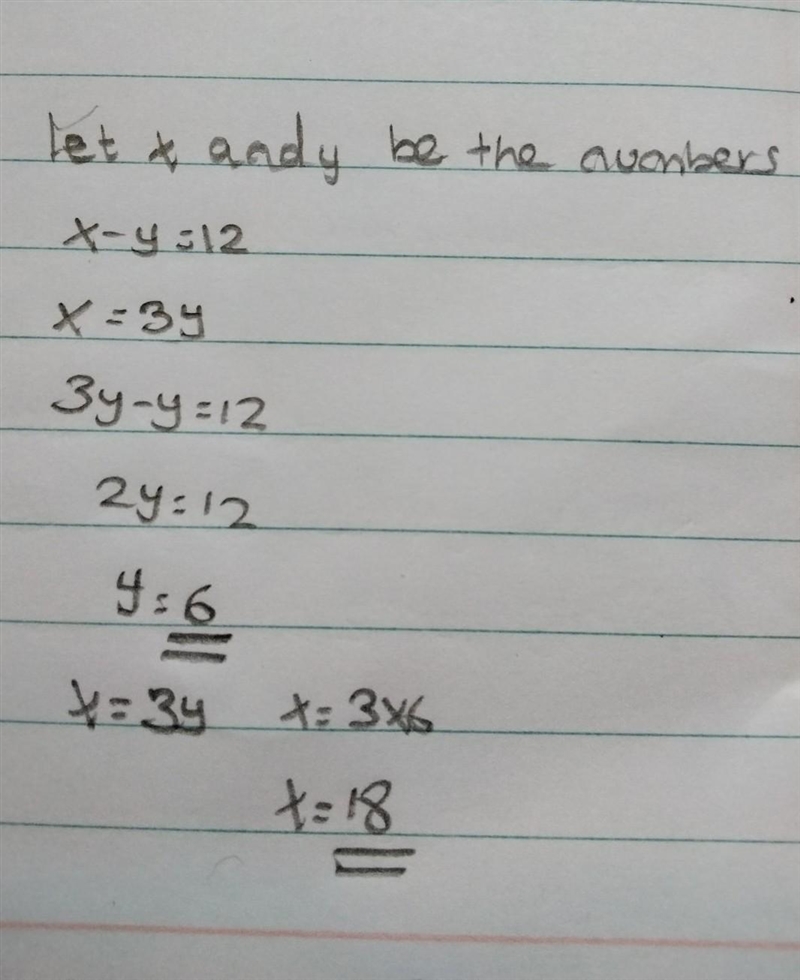 let x and y be the numbers
x-y=12
x=3y
3y-y=12
2y=12
y=6
x=3y x=3x6
x=18